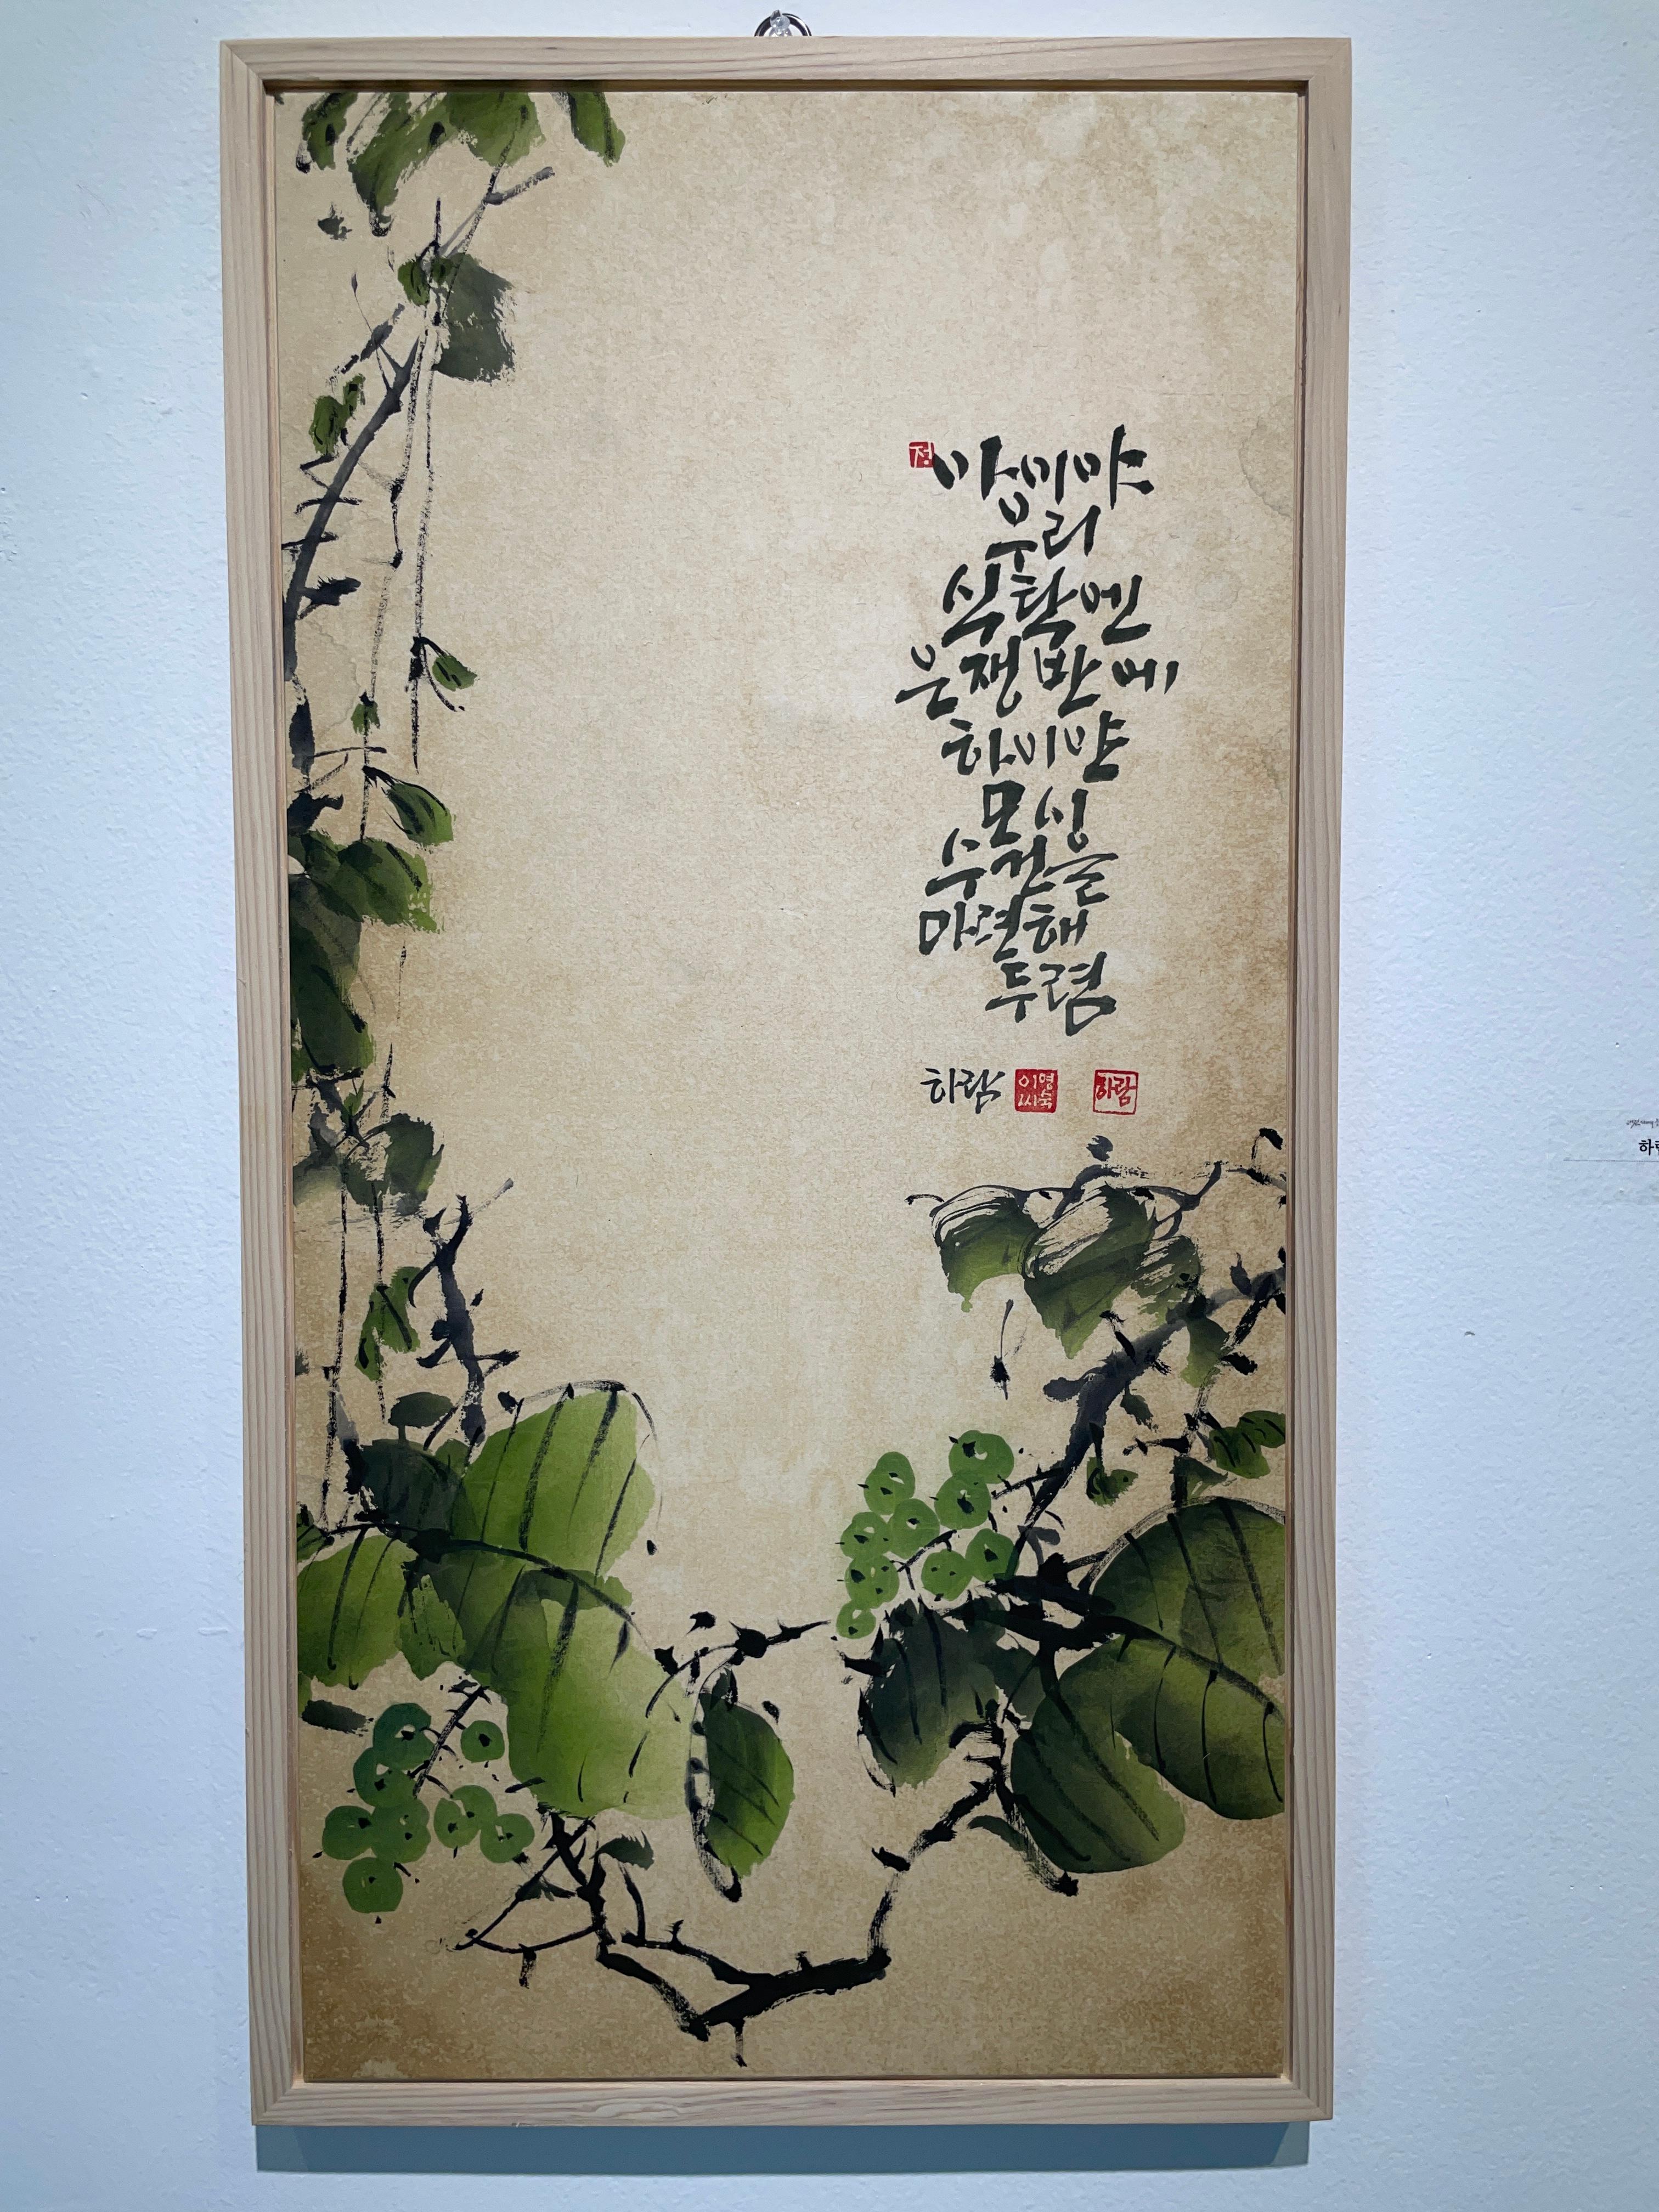 정
아이야
우리
식탁엔
은쟁반에
하이얀
모시
수건을
마련해
두렴
하람
이영
씨숙
하람